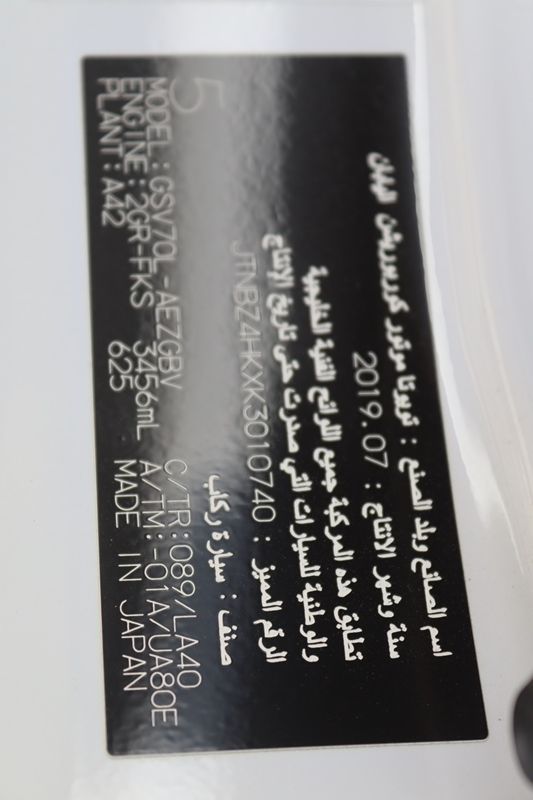 اسم الصانع وبلد الصنع : تويوتا موتور كوربوريشن اليابان
سنة وشهر الانتاج : 2019.07
تطابق هذه المركبة جميع اللوائح الفنية الخليجية
والوطنية للسيارات التي صدرت حتى تاريخ الإنتاج
الرقم المميز : JTNBZ4HKXK3010740
صنف : سيارة ركاب
5
MODEL:GSV70L-AEZGBV C/TR:089/LA40
ENGINE:2GR-FKS 3456mL A/TM:-01A/UA80E
PLANT:A42 625 MADE IN JAPAN